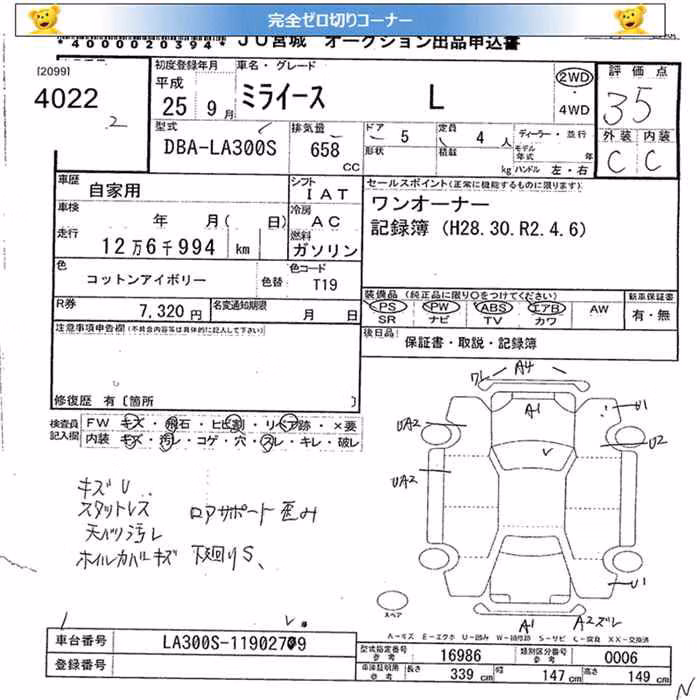 完全ゼロ切りコーナー
*4000020394* JU宮城 オークション出品申込書
[2099]
4022
2
初度登録年月 平成 25 9月
車名・グレード ミライース L
2WD
4WD
評価点 35
外装 内装
C C
型式 DBA-LA300S
排気量 658 CC
ドア 5
形状
定員 4 人
積載 kg
ディーラー・並行
モデル年式 年
ハンドル 左・右
車歴 自家用
シフト IAT
車検 年 月( 日)
冷房 AC
走行 12万6千994 km
燃料 ガソリン
セールスポイント(正常に機能するものに限ります)
ワンオーナー
記録簿(H28.30.R2.4.6)
色 コットンアイボリー 色替
色コード T19
R券 7,320円
名変通知期限 月 日
装備品(純正品に限り○をつけてください)
PS PW ABS エアB AW
SR ナビ TV カワ
新車保証書 有・無
後日品 保証書・取説・記録簿
注意事項申告欄(不具合内容等は具体的に記入して下さい)
修復歴 有〔箇所 〕
検査員記入欄
FW キズ・飛石・ヒビ割・リペア跡・×要
内装 キズ・汚レ・コゲ・穴・スレ・キレ・破レ
キズU
スタットレス ロアサポート歪み
天バリ汚レ
ホイルカバーキズ 下廻りS、
ワレ A4
A1
U1
UA2
U2
UA2
U1
スペア
A1 A2ズレ
A-キズ E-エクボ U-凹み W-補修跡 S-サビ C-腐食 XX-交換済
車台番号 LA300S-1190279
登録番号
型式指定番号 参考 16986
類別区分番号 参考 0006
車庫証明用 参考 長さ 339 cm 幅 147 cm 高さ 149 cm
N